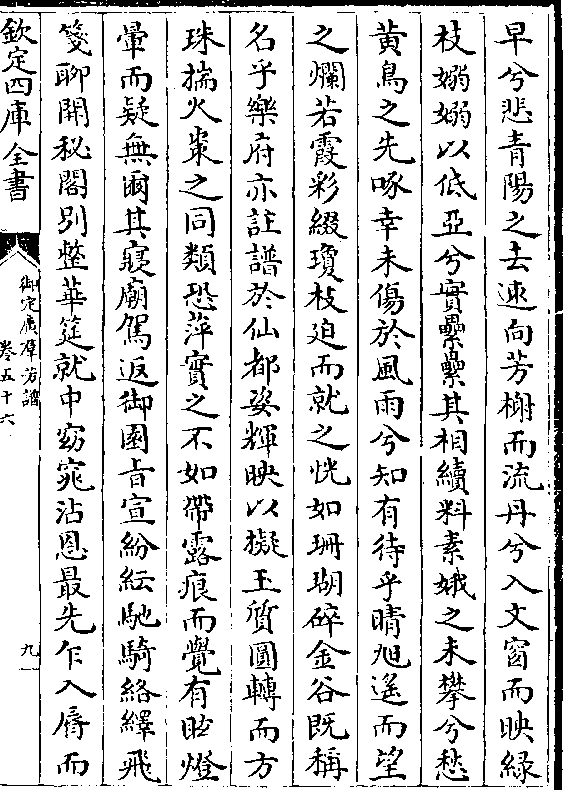 早兮悲青陽之去速向芳榭而流丹兮入文窗而映緑
枝嫋嫋以低亞兮實纍纍其相續料素娥之未攀兮愁
黄鳥之先啄幸未傷於風雨兮知有待乎晴旭遥而望
之爛若霞彩綴瓊枝迫而就之恍如珊瑚碎金谷既稱
名乎樂府亦註譜於仙都姿輝映以擬玉質圓轉而方
珠揣火棗之同類恐萍實之不如帶露痕而覺有眩燈
暈而疑無爾其寢廟駕返御園旨宣紛紜馳騎絡繹飛
箋聊開秘閣别整華筵就中窈窕沾恩最先乍入脣而
欽定四庫全書
御定廣羣芳譜
卷五十六
九